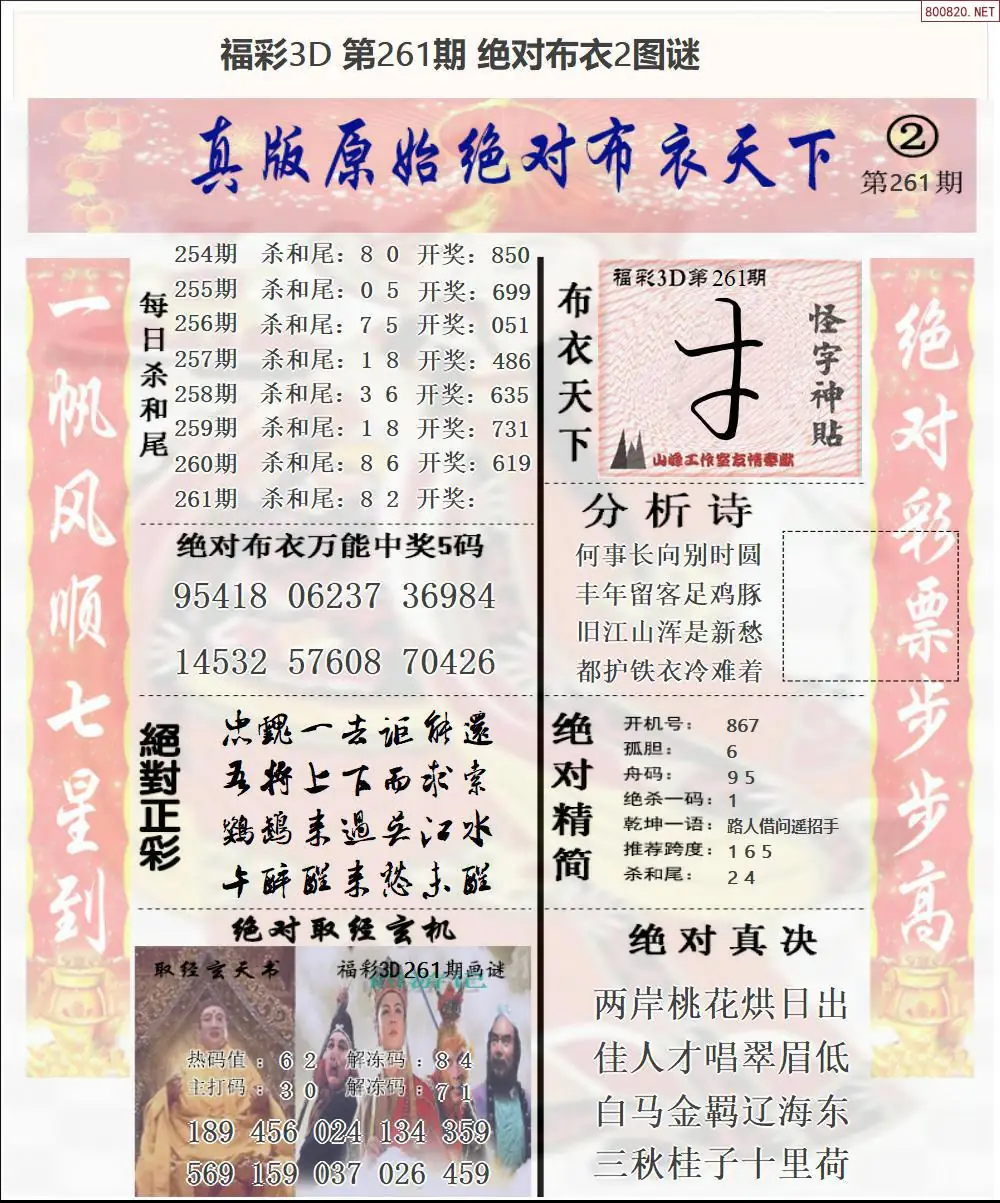 800820.NET
福彩3D 第261期 绝对布衣2图谜
真版原始绝对布衣天下
②
第261期
一帆风顺七星到
每日杀和尾
254期 杀和尾: 8 0 开奖: 850
255期 杀和尾: 0 5 开奖: 699
256期 杀和尾: 7 5 开奖: 051
257期 杀和尾: 1 8 开奖: 486
258期 杀和尾: 3 6 开奖: 635
259期 杀和尾: 1 8 开奖: 731
260期 杀和尾: 8 6 开奖: 619
261期 杀和尾: 8 2 开奖:
绝对布衣万能中奖5码
95418 06237 36984
14532 57608 70426
絕對正彩
忠魂一去讵能還
吾将上下而求索
鷓鴣来過吴江水
午醉醒来愁未醒
绝对取经玄机
取经玄天书
福彩3D261期画谜
热码值 : 6 2 解冻码 : 8 4
主打码 : 3 0 解冻码 : 7 1
189 456 024 134 359
569 159 037 026 459
布衣天下
福彩3D第261期
怪字神贴
山峰工作室友情奉献
分析诗
何事长向别时圆
丰年留客足鸡豚
旧江山浑是新愁
都护铁衣冷难着
绝对精简
开机号: 867
孤胆: 6
舟码: 9 5
绝杀一码: 1
乾坤一语: 路人借问遥招手
推荐跨度: 1 6 5
杀和尾: 2 4
绝对真决
两岸桃花烘日出
佳人才唱翠眉低
白马金羁辽海东
三秋桂子十里荷
绝对彩票步步高